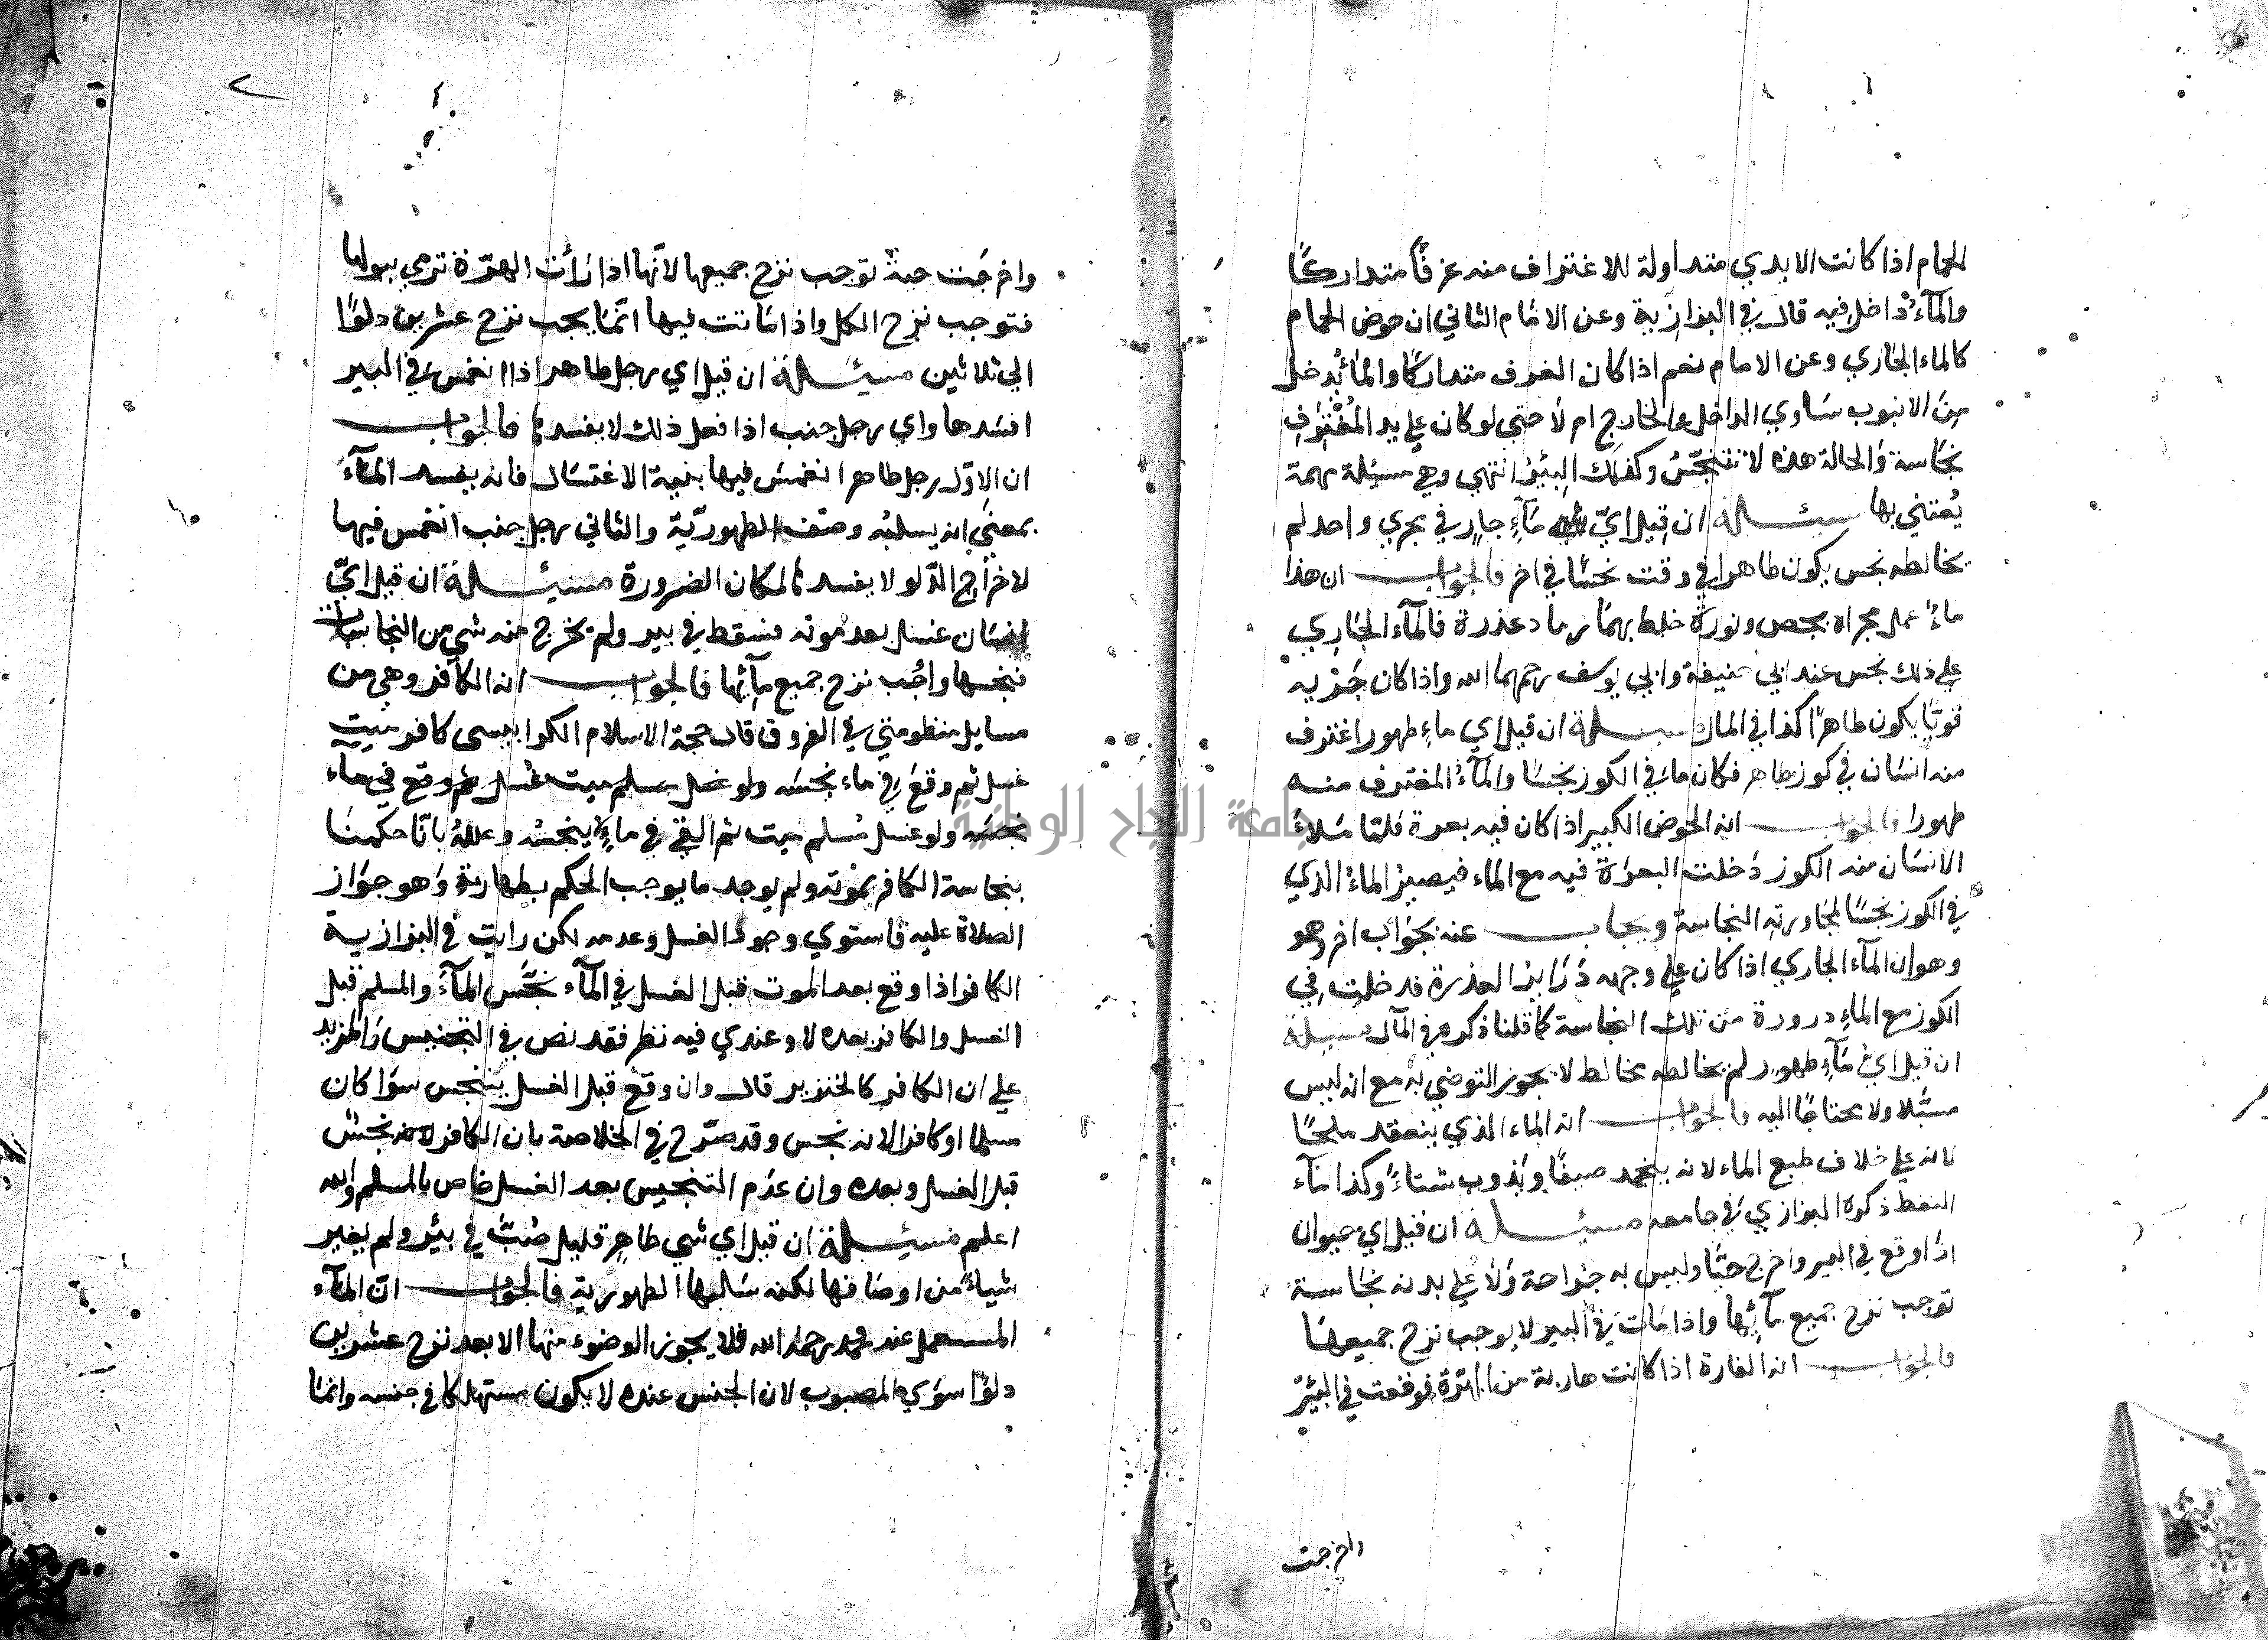 الحمام اذا كانت الايدي متداولة للاغتراف منه غرفًا متداركًا
والمآء داخل فيه قال في البزازية وعن الامام الثاني ان حوض الحمام
كالماء الجاري وعن الامام نعم اذا كان الغرف متداركا والماء يدخل
من الانبوب ساوي الداخل والخارج ام لا حتى لو كان على يد المغترف
نجاسة والحالة هذه لا تتنجس وكذلك البئر انتهى وهي مسئلة مهمة
يعتني بها مسئلة ان قيل اي مآء جار في مجري واحد لم
يخالطه نجس يكون طاهرا في وقت نجسًا في اخر فالجواب ان هذا
ماء عمل مجراه بجص ونورة خلط بهما رماد عذرة فالمآء الجاري
على ذلك نجس عند ابي حنيفة وابي يوسف رحمهما الله واذا كان جريه
قويًا يكون طاهرًا كذا في المال مسئلة ان قيل اي ماء طهور اغترف
منه انسان في كوز طاهر فكان ما في الكوز نجسًا والمآء المغترف منه
طهورا فالجواب انه الحوض الكبير اذا كان فيه بعرة فلما ملأ
الانسان منه الكوز دخلت البعرة فيه مع الماء فيصير الماء الذي
في الكوز نجسًا لمجاورته النجاسة ويجاب عنه بجواب اخر وهو
وهو ان المآء الجاري اذا كان على وجهه العذرة قد خلت في
الكوز مع الماء درورة من تلك النجاسة كما قلنا ذكره في المآل مسئلة
ان قيل اي مآء طهور لم يخالطه مخالط لا يجوز التوضي به مع انه ليس
مسبلا ولا محتاجًا اليه فالجواب انه الماء الذي ينعقد ملحًا
لانه على خلاف طبع الماء لانه يتجمد صيفًا ويذوب شتاءً وكذا مآء
النفط ذكره البزازي في جامعه مسئلة ان قيل اي حيوان
اذا وقع في البير واخرج حيًا وليس به جراحة ولا على بدنه نجاسة
توجب نزح جميع مآئها واذا مات في البير لا يوجب نزح جميعها
فالجواب انه الفارة اذا كانت هاربة من الهرة فوقعت في البئر
واخرجت
واخرجت حية توجب نزح جميعها لانها اذا رأت الهرة ترمي ببولها
فتوجب نزح الكل واذا ماتت فيها انما يجب نزح عشرين دلوًا
الى ثلاثين مسئلة ان قيل اي رجل طاهر اذا انغمس في البير
افسدها واي رجل جنب اذا فعل ذلك لا يفسد فالجواب
ان الاول رجل طاهر انغمس فيها بنية الاغتسال فانه يفسد المآء
بمعنى انه يسلبه وصف الطهورية والثاني رجل جنب انغمس فيها
لاخراج الدلو لا يفسد لمكان الضرورة مسئلة ان قيل اي
انسان غسل بعد موته فسقط في بير ولم يخرج منه شي من النجاسات
نجسها واجب نزح جميع مآئها فالجواب انه الكافر وهي من
مسايل منظومتي في الفروق قال حجة الاسلام الكرابيسى كافر ميت
غسل ثم وقع في ماء نجسه ولو غسل مسلم ميت غسل ثم وقع في ماء
نجسه ولو غسل مسلم ميت ثم القي في ماء لا ينجسه وعلله بانا حكمنا
بنجاسة الكافر بموته ولم يوجد ما يوجب الحكم بطهارته وهو جواز
الصلاة عليه فاستوي وجود الغسل وعدمه لكن رايت في البزازية
الكافر اذا وقع بعد الموت قبل الغسل في المآء نجس المآء والمسلم قبل
الغسل والكافر بعده لا وعندي فيه نظر فقد نص في التجنيس والمزيد
على ان الكافر كالخنزير قال وان وقع قبل الغسل ينجس سوا كان
مسلما او كافرا لانه نجس وقد صرح في الخلاصة بان الكافر نجس
قبل الغسل وبعده وان عدم التنجيس بعد الغسل خاص بالمسلم والله
اعلم مسئلة ان قيل اي شي طاهر قليل صب في بئر ولم يغير
شياءً من اوصافها لكنه سالبها الطهورية فالجواب ان المآء
المستعمل عند محمد رحمه الله فلا يجوز الوضوء منها الا بعد نزح عشرين
دلوا سوى المصبوب لان الجنس عنده لا يكون مستهلكا في جنسه وانما
جامعة النجاح الوطنية